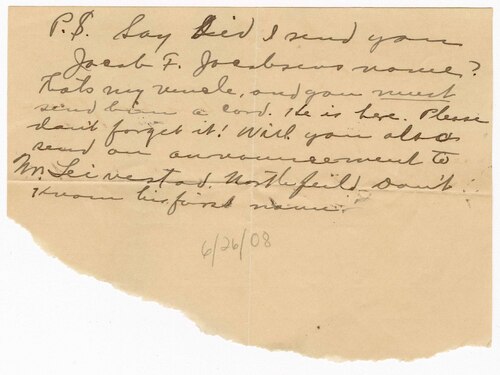 P.S. Say Died I send you
Jacob F. Jacobsens name?
thats my uncle, and you must
send him a card. He is here. Please
don't forget it! Will you also
send an announcement to
Mr. Leivestad. Northfeild Don't
Know his first name.
6/26/08